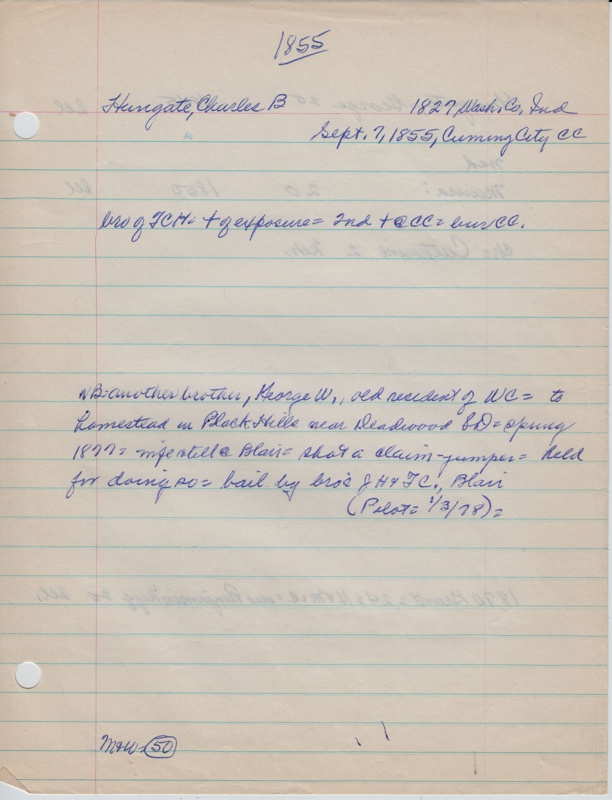 1855
Hungate, Charles B 1827 Wash. Co, Ind
Sept. 7, 1855, Cuming City CC
bro of TCH= + of exposure= 2nd + @CC= bur CC.
NB= another brother, George W., old resident of WC= to
homestead in Black Hills near Deadwood SD= spring
1877= wife still @ Blair= shot a claim-jumper= held
for doing so= bail by bro's JH & TC., Blair
(Pilot= 1/3/78)=
M&W= 50